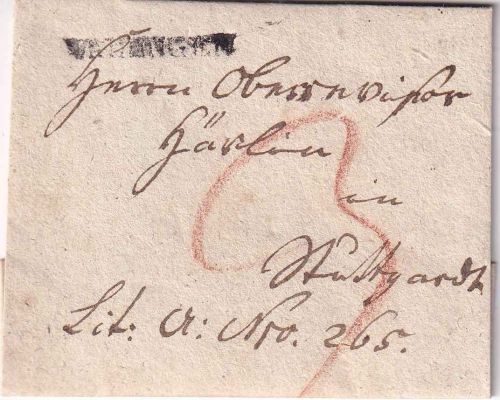 Herrn Oberrevisor
Härlin
in
Stuttgardt
Lit: A: Nro. 265.
3